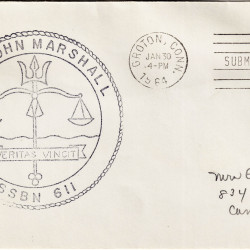 OHN MARSHALL
VERITAS VINCIT
SSBN 611
GROTON, CONN.
JAN 30
4-PM
1964
SUBM
Mrs E
834
Cam